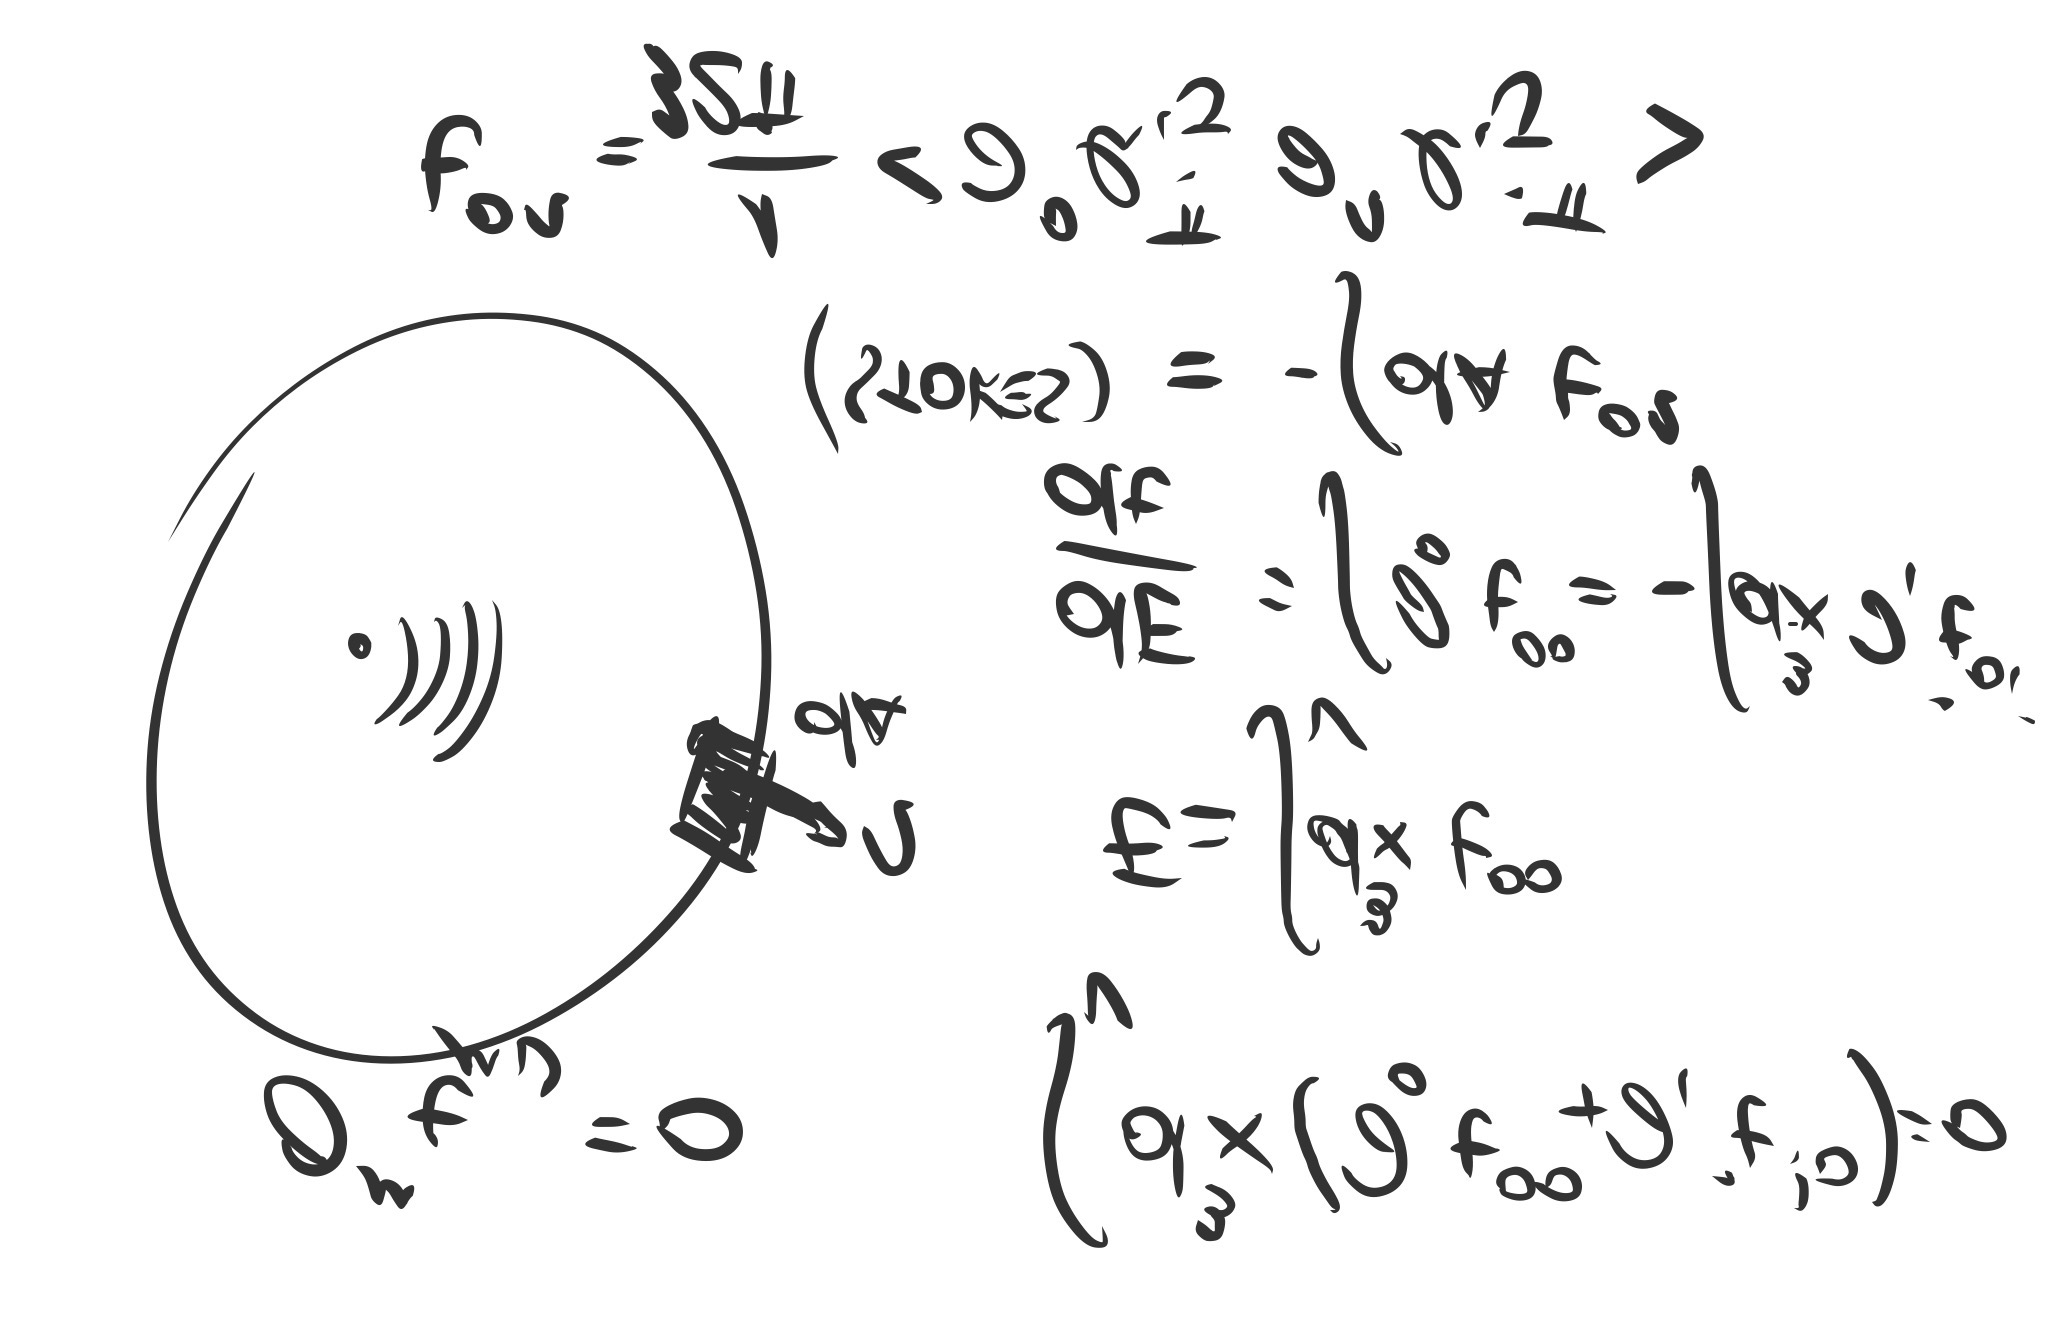 ∂^μ t_μν = 0
∫_V d³x (∂₀ t⁰⁰ + ∂ᵢ tⁱ⁰) = 0
E = ∫_V d³x t⁰⁰
n
dA
dE/dt = ∫ ∂₀ t⁰⁰ = - ∫ d³x ∂ᵢ t⁰ⁱ
(STOKES) = - ∫ dA t⁰ⁿ
t⁰ⁿ = 1/32π < ∂⁰ h_ij^TT ∂ⁿ h_ij^TT >